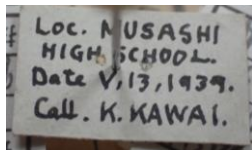 Loc. MUSASHI
HIGH SCHOOL.
Date V, 13, 1939.
Call. K. KAWAI.